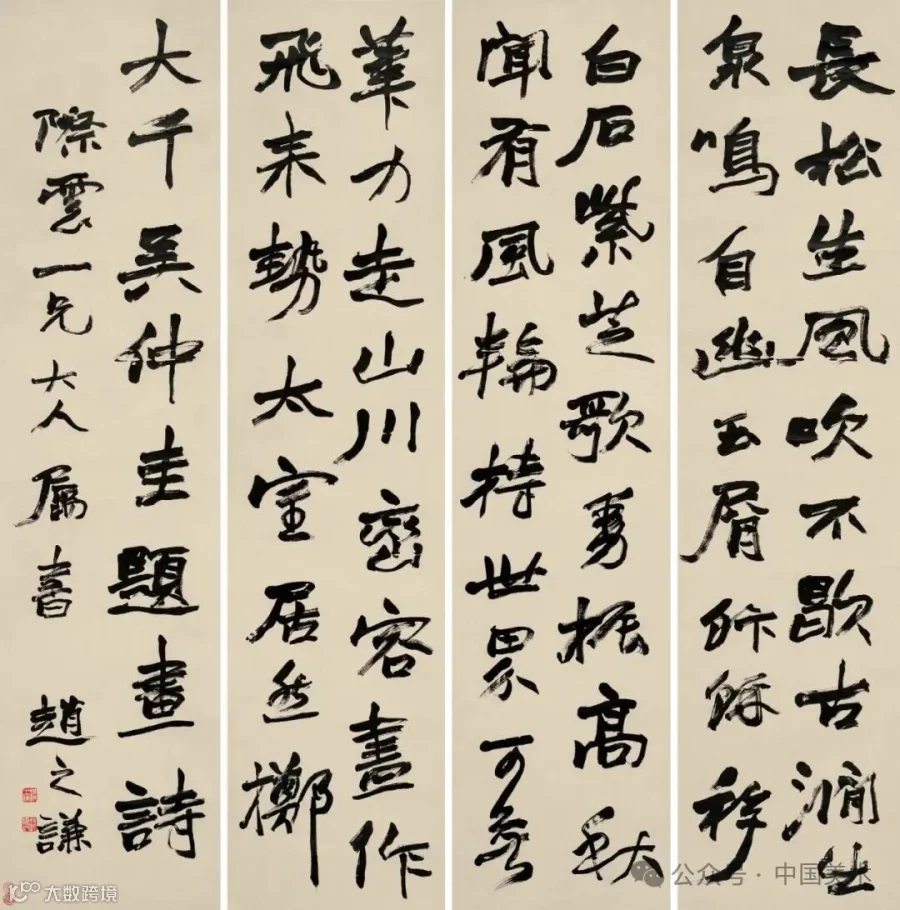 長松生風吹不歇古澗出
泉鳴自幽玉屑
白石紫芝歌勇振高秋
聞有風輪持世界可無
筆力走山川巒容盡作
飛來勢太室居然擲
大千吳仲圭題畫詩
際雲一兄大人屬書 趙之謙
公众号·中国美术
大数跨境